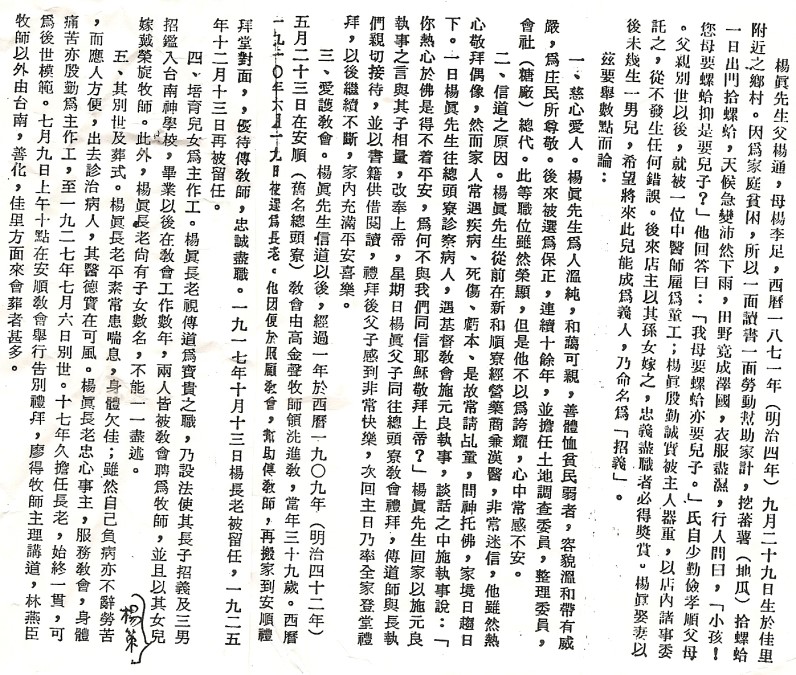 楊眞先生父楊通，母楊李足，西曆一八七一年（明治四年）九月二十九日生於佳里
附近之鄉村。因爲家庭貧困，所以一面讀書一面勞動幫助家計，挖蕃薯（地瓜）拾螺蛤
一日出門拾螺蛤，天候急變沛然下雨，田野竟成澤國，衣服盡濕，行人問曰，「小孩！
您母要螺蛤抑是要兒子？」他回答曰：「我母要螺蛤亦要兒子。」氏自少勤儉孝順父母
。父親別世以後，就被一位中醫師雇爲童工；楊眞殷勤誠實被主人器重，以店內諸事委
託之，從不發生任何錯誤。後來店主以其孫女嫁之，忠義盡職者必得獎賞。楊眞娶妻以
後未幾生一男兒，希望將來此兒能成爲義人，乃命名爲「招義」。
茲要舉數點而論：
一、慈心愛人。楊眞先生爲人溫純，和藹可親，善體恤貧民弱者，容貌溫和帶有威
嚴，爲庄民所尊敬。後來被選爲保正，連續十餘年，並擔任土地調查委員，整理委員，
會社（糖廠）總代。此等職位雖然榮顯，但是他不以爲誇耀，心中常感不安。
二、信道之原因。楊眞先生從前在新和順寮經營藥商兼漢醫，非常迷信，他雖然熱
心敬拜偶像，然而家人常遇疾病、死傷、虧本、是故常請乩童，問神托佛，家境日趨日
下。一日楊眞先生往總頭寮診察病人，遇基督教會施元良執事，談話之中施執事說：「
你熱心於佛是得不着平安，爲何不與我們同信耶穌敬拜上帝？」楊眞先生回家以施元良
執事之言與其子相量，改奉上帝，星期日楊眞父子同往總頭寮教會禮拜，傳道師與長執
們親切接待，並以書籍供借閱讀，禮拜後父子感到非常快樂，次回主日乃率全家登堂禮
拜，以後繼續不斷，家內充滿平安喜樂。
三、愛護教會。楊眞先生信道以後，經過一年於西曆一九〇九年（明治四十二年）
五月二十三日在安順（舊名總頭寮）教會由高金聲牧師領洗進教，當年三十九歲。西曆
一九一〇年六月一九日被選爲長老。他因便於照顧教會，幫助傳教師，再搬家到安順禮
拜堂對面，優待傳教師，忠誠盡職。一九一七年十月十三日楊長老被留任，一九二五
年十二月十三日再被留任。
四、培育兒女爲主作工。楊眞長老視傳道爲寶貴之職，乃設法使其長子招義及三男
招鑑入台南神學校，畢業以後在教會工作數年，兩人皆被教會聘爲牧師，並且以其女兒
嫁戴榮旋牧師。此外，楊眞長老尚有子女數名，不能一一盡述。
楊榮
五、其別世及葬式。楊眞長老平素常患喘息，身體欠佳；雖然自己負病亦不辭勞苦
，而應人方便，出去診治病人，其醫德實在可風。楊眞長老忠心事主，服務教會，身體
痛苦亦殷勤爲主作工，至一九二七年七月六日別世。十七年久擔任長老，始終一貫，可
爲後世模範。七月九日上午十點在安順教會舉行告別禮拜，廖得牧師主理講道，林燕臣
牧師以外由台南，善化，佳里方面來會葬者甚多。